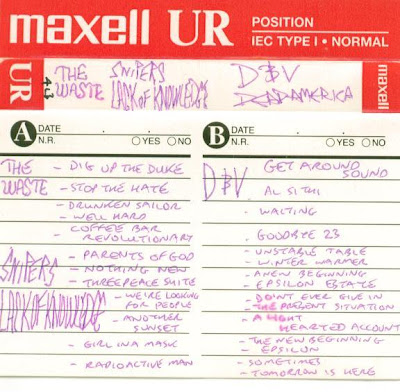 maxell UR POSITION
IEC TYPE I • NORMAL
UR 43 THE WASTE SNIPERS LACK OF KNOWLEDGE D&V RAPAMERICA maxell
A DATE
N.R. YES NO
THE WASTE
- DIG UP THE DUKE
- STOP THE HATE
- DRUNKEN SAILOR
- WELL HARD
- COFFEE BAR
REVOLUTIONARY
SNIPERS
- PARENTS OF GOD
- NOTHING NEW
- THREEPEACE SUITE
LACK OF KNOWLEDGE
- WE'RE LOOKING
FOR PEOPLE
- ANOTHER
SUNSET
- GIRL IN A MASK
- RADIOACTIVE MAN
B DATE
N.R. YES NO
D&V
GET AROUND
SOUND
- WAITING
- GOODBYE 23
- UNSTABLE TABLE
- WINTER WARMER
- A NEW BEGINNING
- EPSILON ESTATE
- DON'T EVER GIVE IN
- THE PRESENT SITUATION
- A LIGHT
HEARTED ACCOUNT
- THE NEW BEGINNING
- EPSILON
- SOMETIMES
- TOMORROW IS HERE